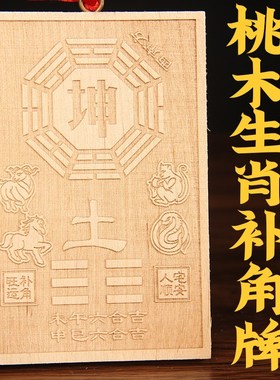 桃木生肖补角牌
坤
土
补角
旺运
宅安
未午六合吉
申巳六合吉